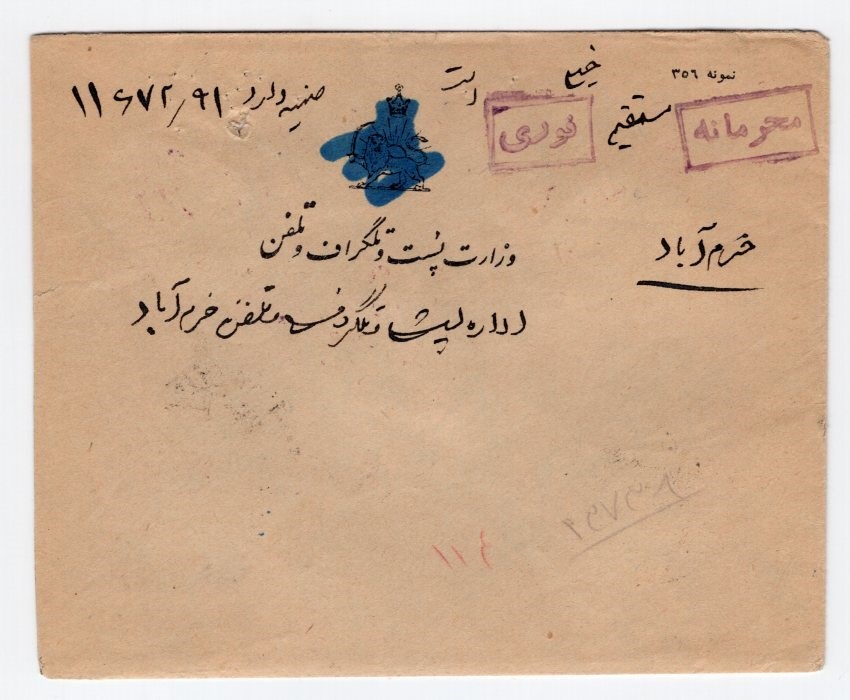 نمونه ۳۵٦
محرمانه
مستقیم
خیلی
فوری
است
ضمیمه دارد
۱۱۶۷۲/۹۱
خرم آباد
وزارت پست و تلگراف و تلفن
اداره پست و تلگراف و تلفن خرم آباد